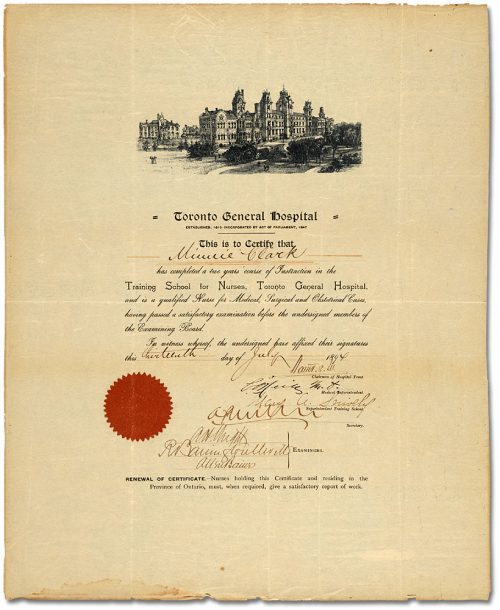 Toronto General Hospital
ESTABLISHED, 1819. INCORPORATED BY ACT OF PARLIAMENT, 1847
This is to Certify that
Minnie Clark
has completed a two years' course of Instruction in the
Training School for Nurses, Toronto General Hospital,
and is a qualified Nurse for Medical, Surgical and Obstetrical Cases,
having passed a satisfactory examination before the undersigned members of
the Examining Board.
In witness whereof, the undersigned have affixed their signatures
this thirteenth day of July 1894
Chairman of Hospital Trust.
Medical Superintendent.
Superintendent Training School.
Secretary.
EXAMINERS.
RENEWAL OF CERTIFICATE.—Nurses holding this Certificate and residing in the
Province of Ontario, must, when required, give a satisfactory report of work.